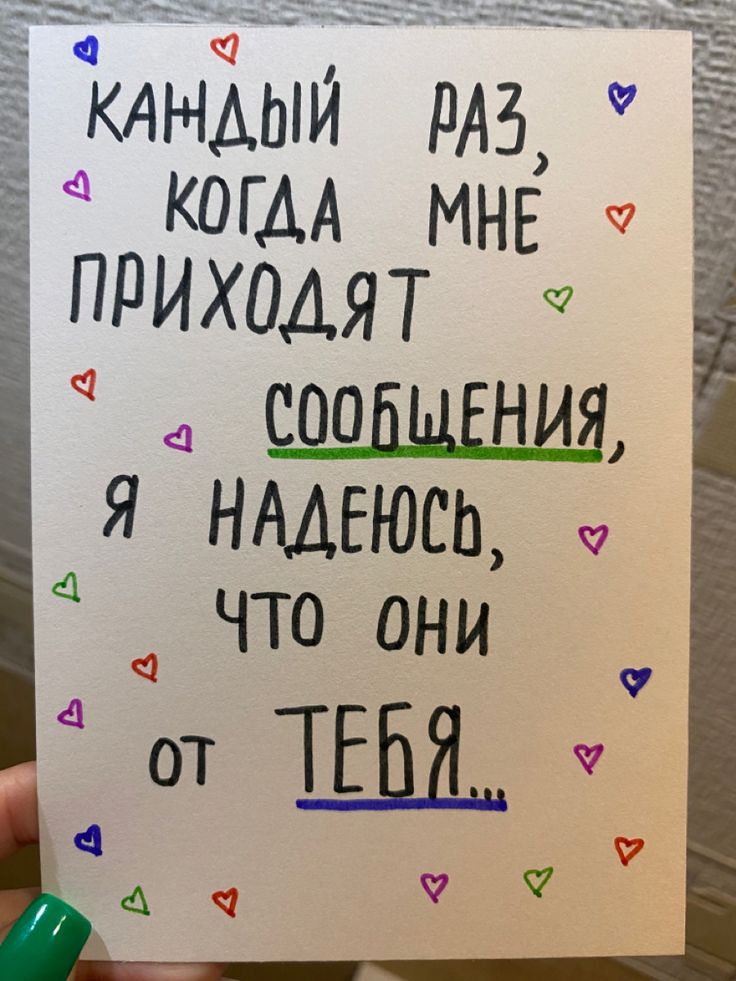 КАЖДЫЙ РАЗ,
КОГДА МНЕ
ПРИХОДЯТ
СООБЩЕНИЯ,
Я НАДЕЮСЬ,
ЧТО ОНИ
ОТ ТЕБЯ...